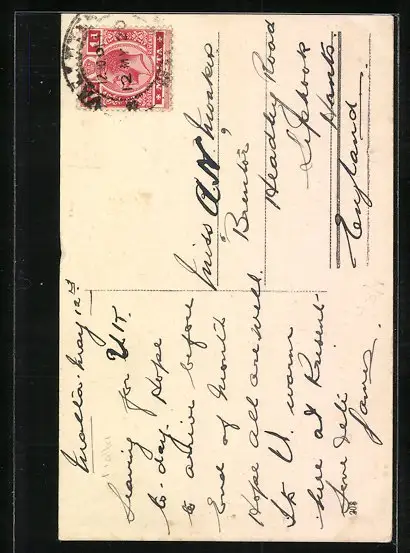 Malta. May 12th
Leaving for
to-day. Hope
to arrive before
End of Month
Hope all are well.
It is warm
here at Present.
Love
James.
Miss A. N.
"Brenlor"
Headley Road
Liphook
Hants.
England.
MALTA
12 MY
1d
208